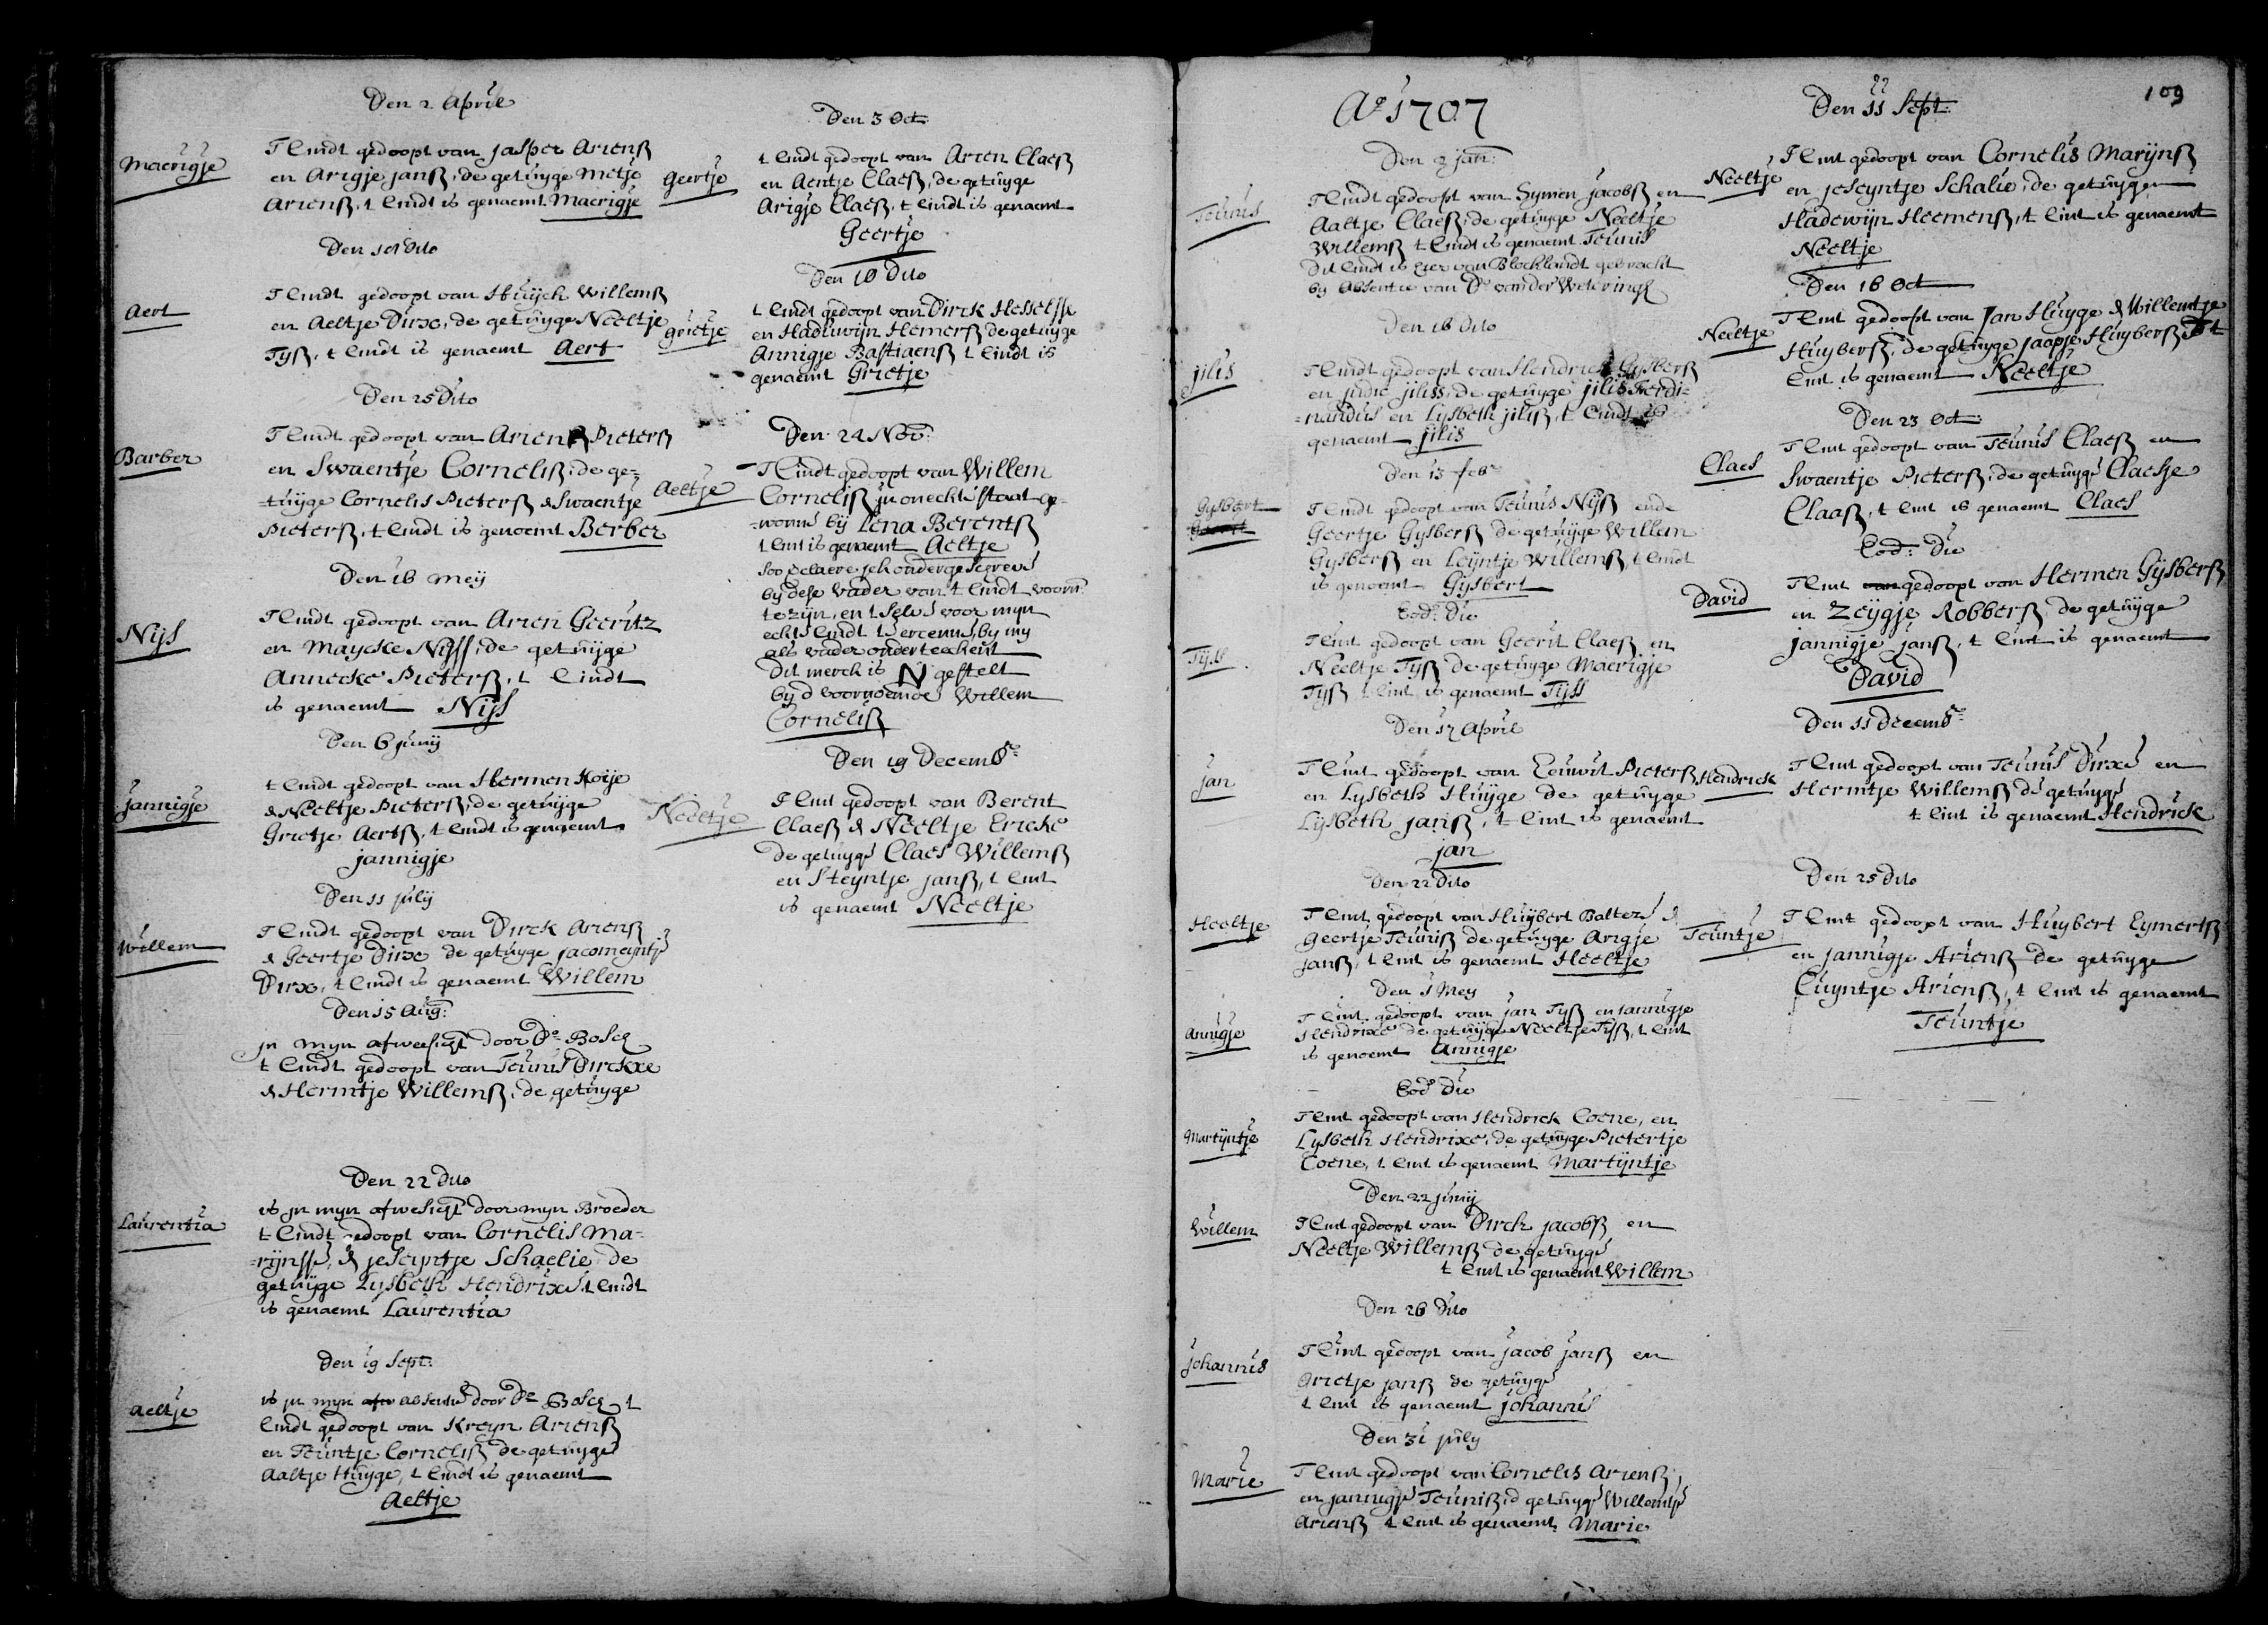 Den 2 April
Maerigje
T Cindt gedoopt van Jasper Ariensz
en Arigje Jansz, de getuyge Metje
Ariensz, t Cindt is genaemt Maerigje
Den 18 Dito
Aert
T Cindt gedoopt van Huijch Willemsz
en Aeltje Dirxe, de getuyge Neeltje
Tysz, t Cindt is genaemt Aert
Den 25 Dito
Barber
T Cindt gedoopt van Ariensz Pietersz
en Swaentje Cornelisz, de ge=
=tuyge Cornelis Pietersz & Swaentje
Pietersz, t Cindt is genoemt Berber
Den 16 Meij
Nijs
T Cindt gedoopt van Arien Geeritz
en Maycke Nijss, de getuijge
Annecke Pietersz, t Cindt
is genaemt Nijs
Den 6 Junij
Jannigje
t Cindt gedoopt van Hermen Koije
& Neeltje Pietersz, de getuijge
Grietje Aertsz, t Cindt is genaemt
Jannigje
Den 11 Julij
Willem
T Cindt gedoopt van Dirck Ariensz
& Geertje Dirxe de getuyge Jacomeijntje
Dirxe, t Cindt is genaemt Willem
Den 15 Aug:
Jn myn afwesigt door Ds Boscq
t Cindt gedoopt van Teunis Dirckxe
& Hermtje Willemsz, de getuyge
Den 22 Dito
Laurentia
is jn myn afwesigt door myn Broeder
t Cindt gedoopt van Cornelis Ma=
=rijnsse, & Jeseyntje Schaelie, de
getuijge Lysbeth Hendrixe, t Cindt
is genaemt Laurentia
Den 19 Sept:
Aeltje
is jn myn afw absentie door Ds Boscq t
Cindt gedoopt van Kreyn Ariensz
en Teuntje Cornelisz de getuyge
Aaltje Huyge, t Cindt is genaemt
Aeltje
Den 3 Oct:
Geertje
t Cindt gedoopt van Arien Claesz
en Aentje Claesz, de getuyge
Arigje Claesz, t Cindt is genaemt
Geertje
Den 10 Dito
Grietje
t Cindt gedoopt van Dirck Hesselsse
en Hadewijn Hemersz de getuyge
Annigje Bastiaensz t Cindt is
genaemt Grietje
Den 24 Nov:
Aeltje
T Cindt gedoopt van Willem
Cornelisz jn onechte staat ge=
=wonne bij Lena Berentsz
t Cint is genaemt Aeltje
Soo delaere jek ondergescreve
by dese vader van t Cindt voorn:
te zijn, en t selve voor myn
echte Cindt t ercenne, by my
als vader onderteekent
Dit merck is N gestelt
by d voornoemde Willem
Cornelisz
Den 19 Decemb:
Neeltje
T Cint gedoopt van Berent
Claesz & Neeltje Ericke
de getuyge Claes Willemsz
en Steyntje Jansz, t Cint
is genaemt Neeltje
Ao 1707
Den 2 Jan:
Teunis
T Cindt gedoopt van Symen Jacobsz en
Aaltje Claesz, de getuyge Neeltje
Willemsz t Cindt is genaemt Teunis
Dit Cindt is hier van Blocklandt gebracht
by absentie van Ds van der Weteringh
Den 16 Dito
Jilis
T Cindt gedoopt van Hendrick Gysbersz
en Judic Jiliss, de getuyge Jilis Ferdi=
=nandus en Lysbeth Jilisz, t Cindt is
genaemt Jilis
Den 13 Feb:
Gysbert
Geerit
T Cindt gedoopt van Teunis Nijsz ende
Geertje Gysbersz de getuijge Willem
Gysbersz en Leijntje Willemsz, t Cindt
is genoemt Gysbert
Eod: Die
Tijss
T Cint gedoopt van Geerit Claesz en
Neeltje Tysz de getuyge Maerigje
Tysz t Cint is genaemt Tijss
Den 17 April
Jan
T Cint gedoopt van Eeuwit Pietersz
en Lysbeth Huijge de getuyge
Lysbeth Jansz, t Cint is genaemt
Jan
Den 22 Dito
Heeltje
T Cint gedoopt van Huijbert Baltezs &
Geertje Teunisz de getuyge Arigje
Jansz, t Cint is genaemt Heeltje
Den 1 Mey
Annigje
T Cint gedoopt van Jan Tysz en Jannigje
Hendrixe de getuyge Neeltje Tysz, t Cint
is genoemt Annigje
Eod: Die
Martyntje
T Cint gedoopt van Hendrick Coene, en
Lysbeth Hendrixe, de getuyge Pietertje
Coene, t Cint is genaemt Martijntje
Den 22 Junij
Willem
T Cint gedoopt van Dirck Jacobsz en
Neeltje Willemsz de getuyge
t Cint is genaemt Willem
Den 26 Dito
Johannis
T Cint gedoopt van Jacob Jansz en
Grietje Jansz de getuyge
t Cint is genaemt Johannis
Den 31 July
Marie
T Cint gedoopt van Cornelis Ariensz,
en Jannigje Teunisz d getuyge Willemtje
Ariensz t Cint is genaemt Marie
109
Den 11 Sept:
Neeltje
T Cint gedoopt van Cornelis Marijnsz
en Jeseyntje Schalie, de getuygen
Hadewijn Heemensz, t Cint is genaemt
Neeltje
Den 16 Oct
Neeltje
T Cint gedoopt van Jan Huyge & Willemtje
Huybersz, de getuyge Jaapje Huybersz t
Cint is genaemt Neeltje
Den 23 Oct:
Claes
T Cint gedoopt van Teunis Claesz en
Swaentje Pietersz, de getuyge Claesje
Claasz, t Cint is genaemt Claes
Eod: Die
David
T Cint van gedoopt van Hermen Gysbersz
en Zeygje Robbersz de getuyge
Jannigje Jansz, t Cint is genaemt
David
Den 11 Decemb:
Hendrick
T Cint gedoopt van Teunis Dirxe en
Hermtje Willemsz de getuyge
t Cint is genaemt Hendrick
Den 25 Dito
Teuntje
T Cint gedoopt van Huybert Eymertsz
en Jannigje Ariensz de getuyge
Cuyntje Ariensz, t Cint is genaemt
Teuntje